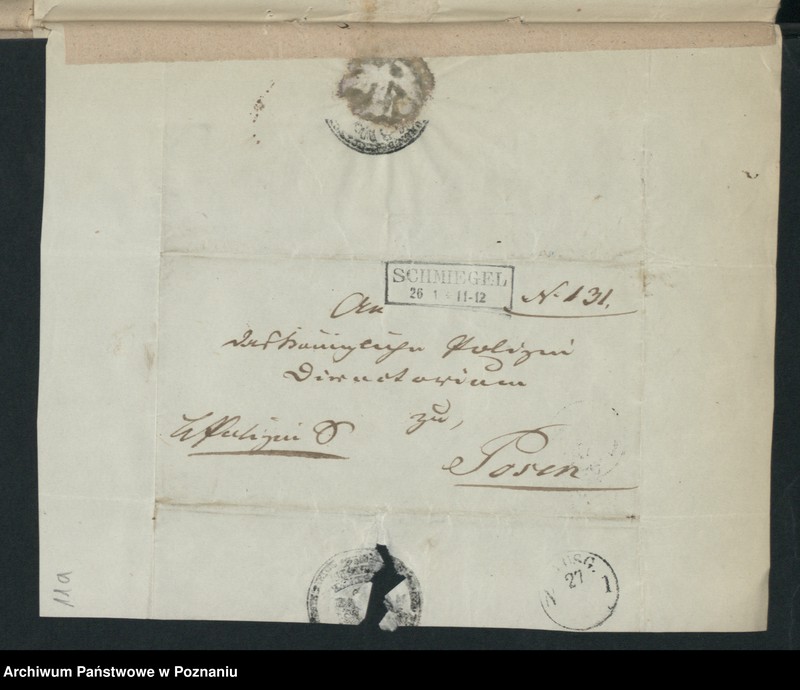 SCHMIEGEL
26 1 11-12
No 131.
An
das Königliche Polizei
Directorium
zu,
Posen
Polizei S
AUSG.
27
N 1
11a
Archiwum Państwowe w Poznaniu